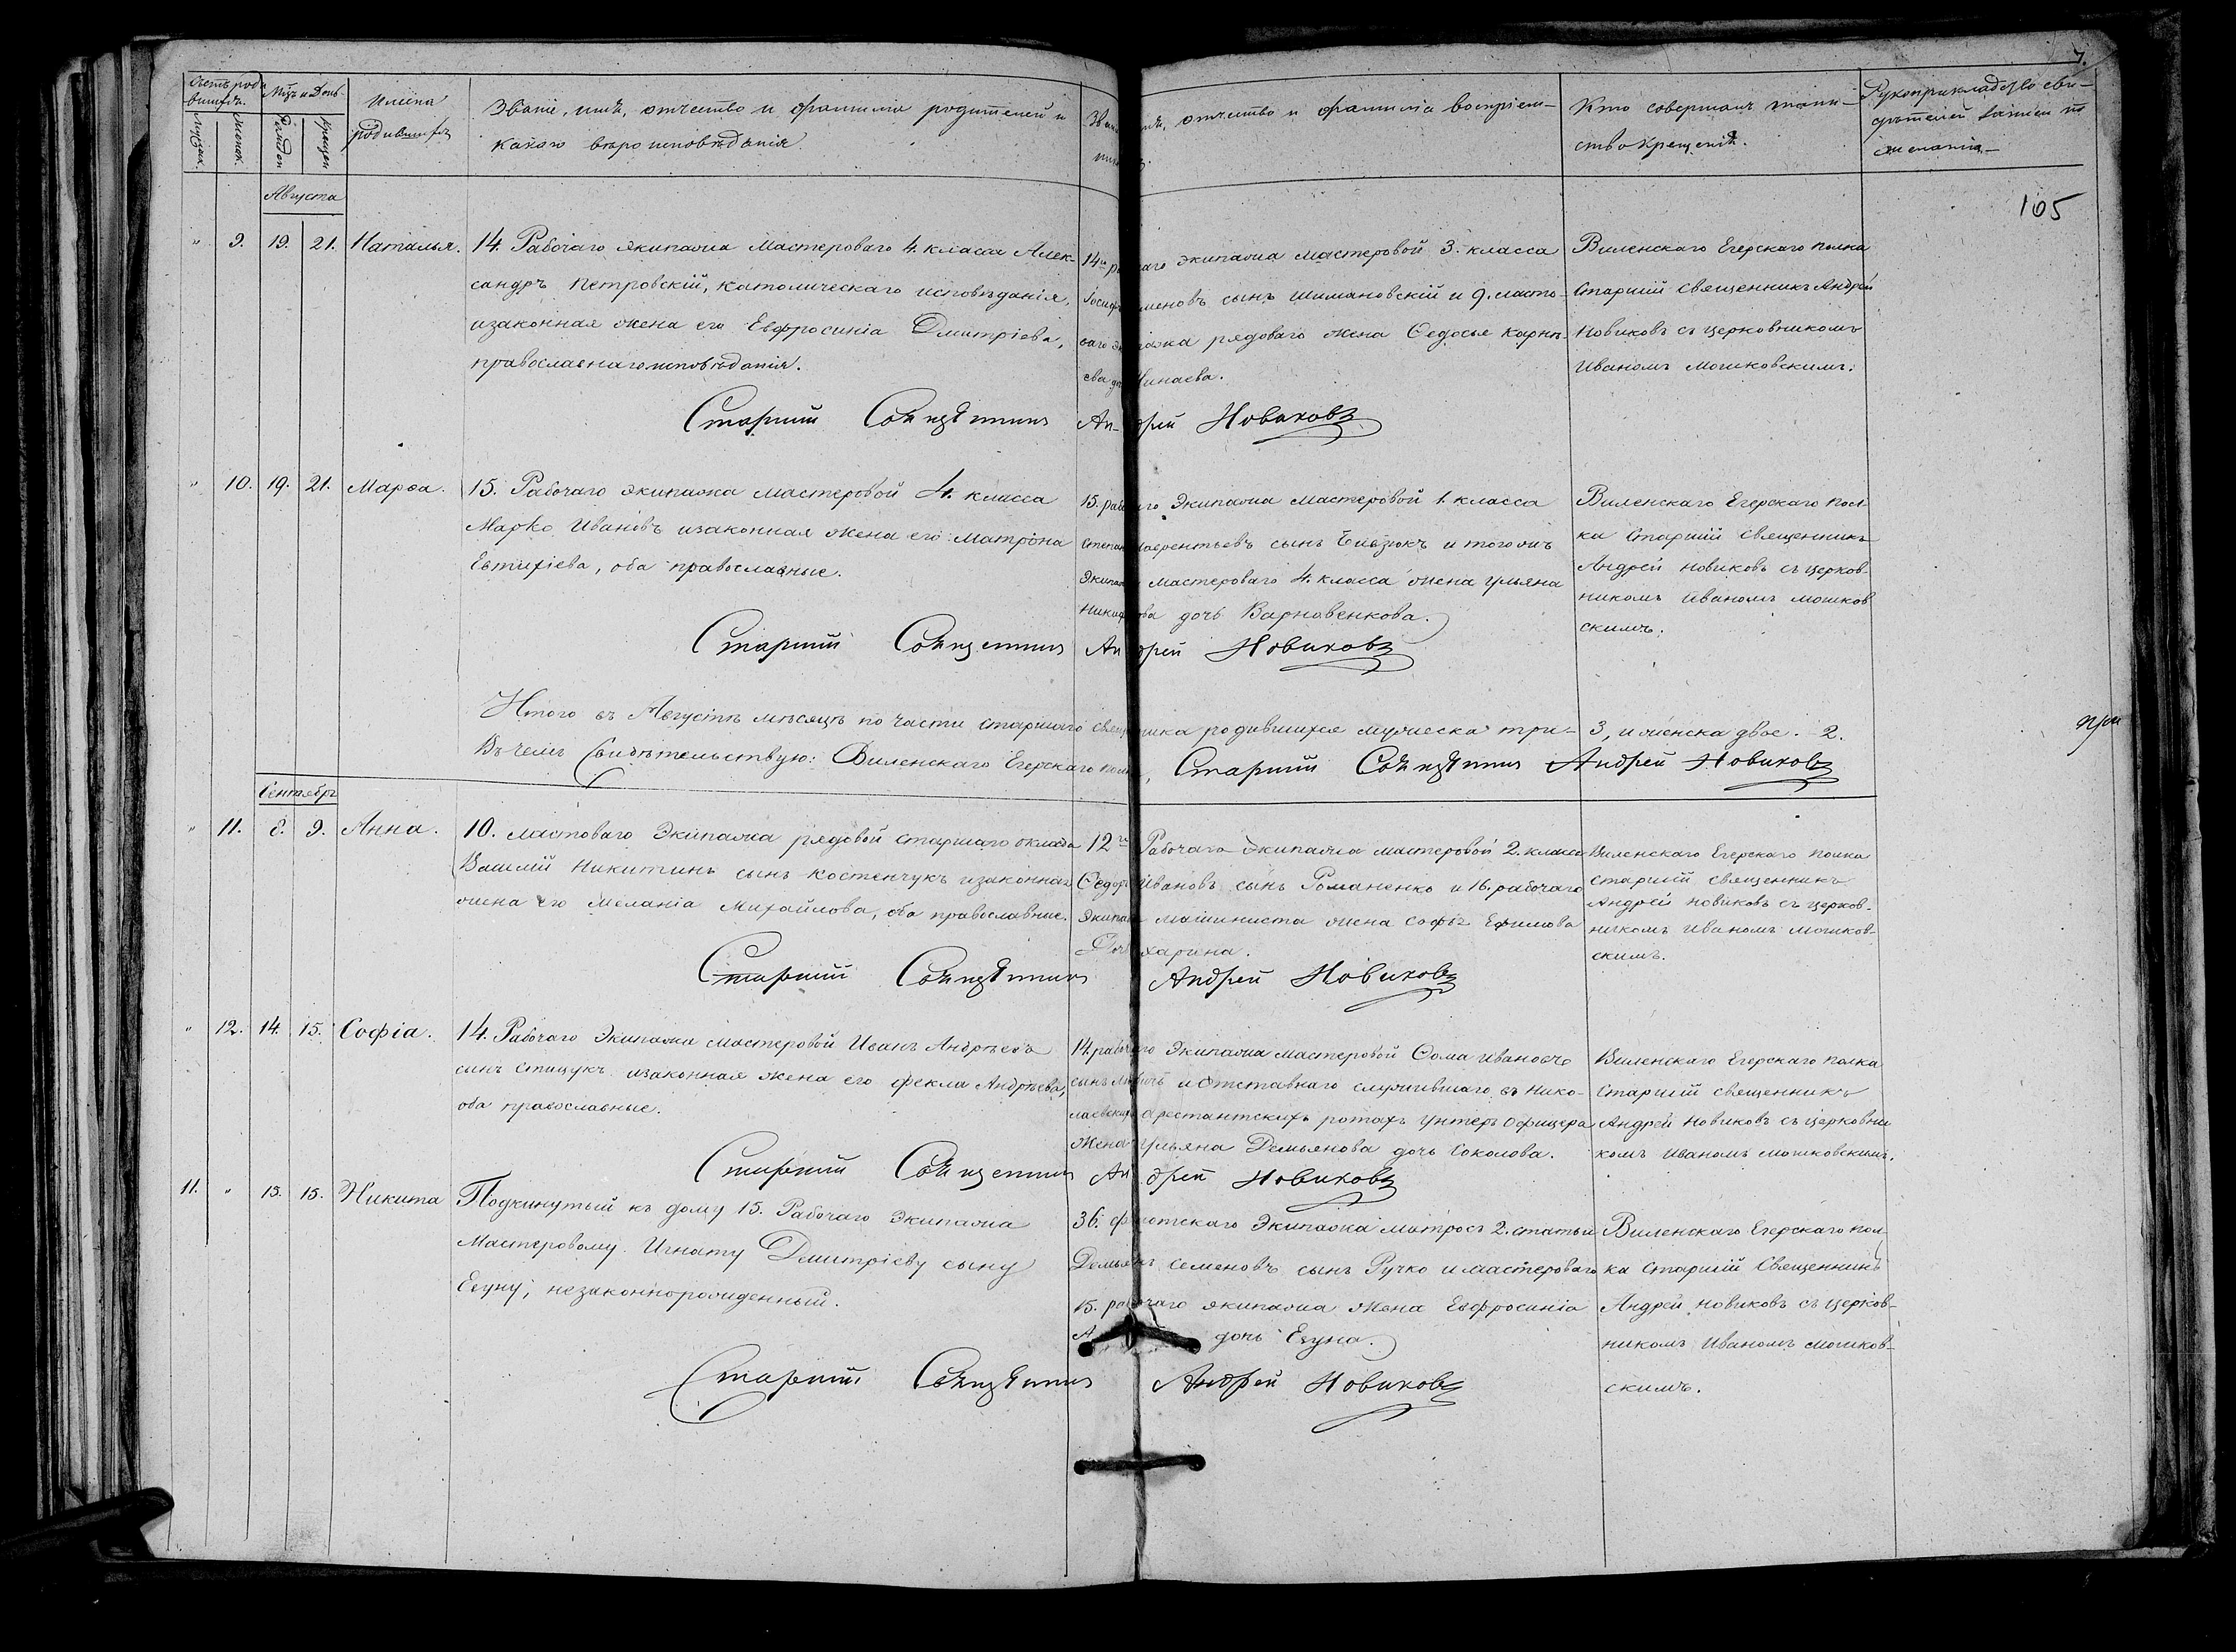 7.
Счетъ роди
вшихъ.
Мцъ и День
Имена
родившихъ
Званіе, имя, отчество и фамилія родителей и
какого вѣроисповѣданія.
отчество и фамилія воспріем-
Кто совершалъ таин-
ство крещенія.
Рукоприкладство сви-
дѣтелей записи по
желанію
Мужск.
Женск.
Рожден
Крещен
105
Августа
" 9. 19. 21. Наталья.
14. Рабочаго экипажа Мастероваго 4. класса Алек-
сандръ Петровскій, католическаго исповѣданія,
изаконная жена его Евфросинія Дмитріева,
православнаго исповѣданія.
14го рабочаго экипажа мастеровой 3. класса
Іосифъ Семеновъ сынъ Шимановскій и 9. ласто-
ваго экипажа рядоваго жена Ѳедосья Карпѣ-
ева дочь Минаева.
Виленскаго Егерскаго полка
Старшій Священникъ Андрей
Новиковъ съ церковникомъ
Иваномъ Мошковскимъ.
Старшій Священникъ Андрей Новиковъ
" 10. 19. 21. Марѳа.
15. Рабочаго экипажа мастеровой 4. класса
Марко Ивановъ изаконная жена его Матрона
Евтихіева, оба православные.
15. рабочаго Экипажа Мастеровой 1. класса
Степанъ Лаврентьевъ сынъ Бивзюкъ и тогожъ
Экипажа Мастероваго 4. класса жена Ульяна
Никифорова дочь Варнавенкова.
Виленскаго Егерскаго пол-
ка Старшій Священникъ
Андрей Новиковъ съ церков-
никомъ Иваномъ Мошков
скимъ.
Старшій Священникъ Андрей Новиковъ
Итого въ Августѣ мѣсяцѣ по части старшаго священника родившихся мужеска три- 3, и женска двое. 2.
Въ чемъ Свидѣтельствую: Виленскаго Егерскаго полка, Старшій Священникъ Андрей Новиковъ
при
Сентябрь
" 11. 8. 9. Анна.
10. ластоваго Экипажа рядовой старшаго оклада
Василій Никитинъ сынъ Костенчукъ изаконная
жена его Меланіа Михайлова, оба православные.
12го Рабочаго Экипажа мастеровой 2. класса
Ѳедоръ Ивановъ сынъ Романенко и 16. рабочаго
Экипажа машиниста жена Софья Ефимова
харина.
Виленскаго Егерскаго полка
старшій священникъ
Андрей Новиковъ съ церков-
никомъ Иваномъ Мошков-
скимъ.
Старшій Священникъ Андрей Новиковъ
" 12. 14. 15. Софіа.
14. Рабочаго Экипажа мастеровой Иванъ Андрѣевъ
сынъ Стацукъ изаконная жена его Фекла Андрѣева,
оба православные.
14. рабочаго Экипажа мастеровой Ѳома Ивановъ
сынъ и отставнаго служившаго въ Нико-
лаевскихъ арестантскихъ ротахъ унтеръ офицера
жена Ульяна Демьянова дочь Соколова.
Виленскаго Егерскаго полка
Старшій священникъ
Андрей Новиковъ съ церковни
комъ Иваномъ Мошковскимъ.
Старшій Священникъ Андрей Новиковъ
11. " 13. 15. Никита
Подкинутый къ дому 15. Рабочаго Экипажа
Мастеровому Игнату Дмитріеву сыну
Егуну; незаконнорожденный.
36. флотскаго Экипажа матросъ 2. статьи
Демьянъ Семеновъ сынъ Ручко и мастероваго
15. рабочаго экипажа жена Евфросинія
дочь Егуна.
Виленскаго Егерскаго пол-
ка Старшій Священникъ
Андрей Новиковъ съ церков-
никомъ Иваномъ Мошков-
скимъ.
Старшій Священникъ Андрей Новиковъ